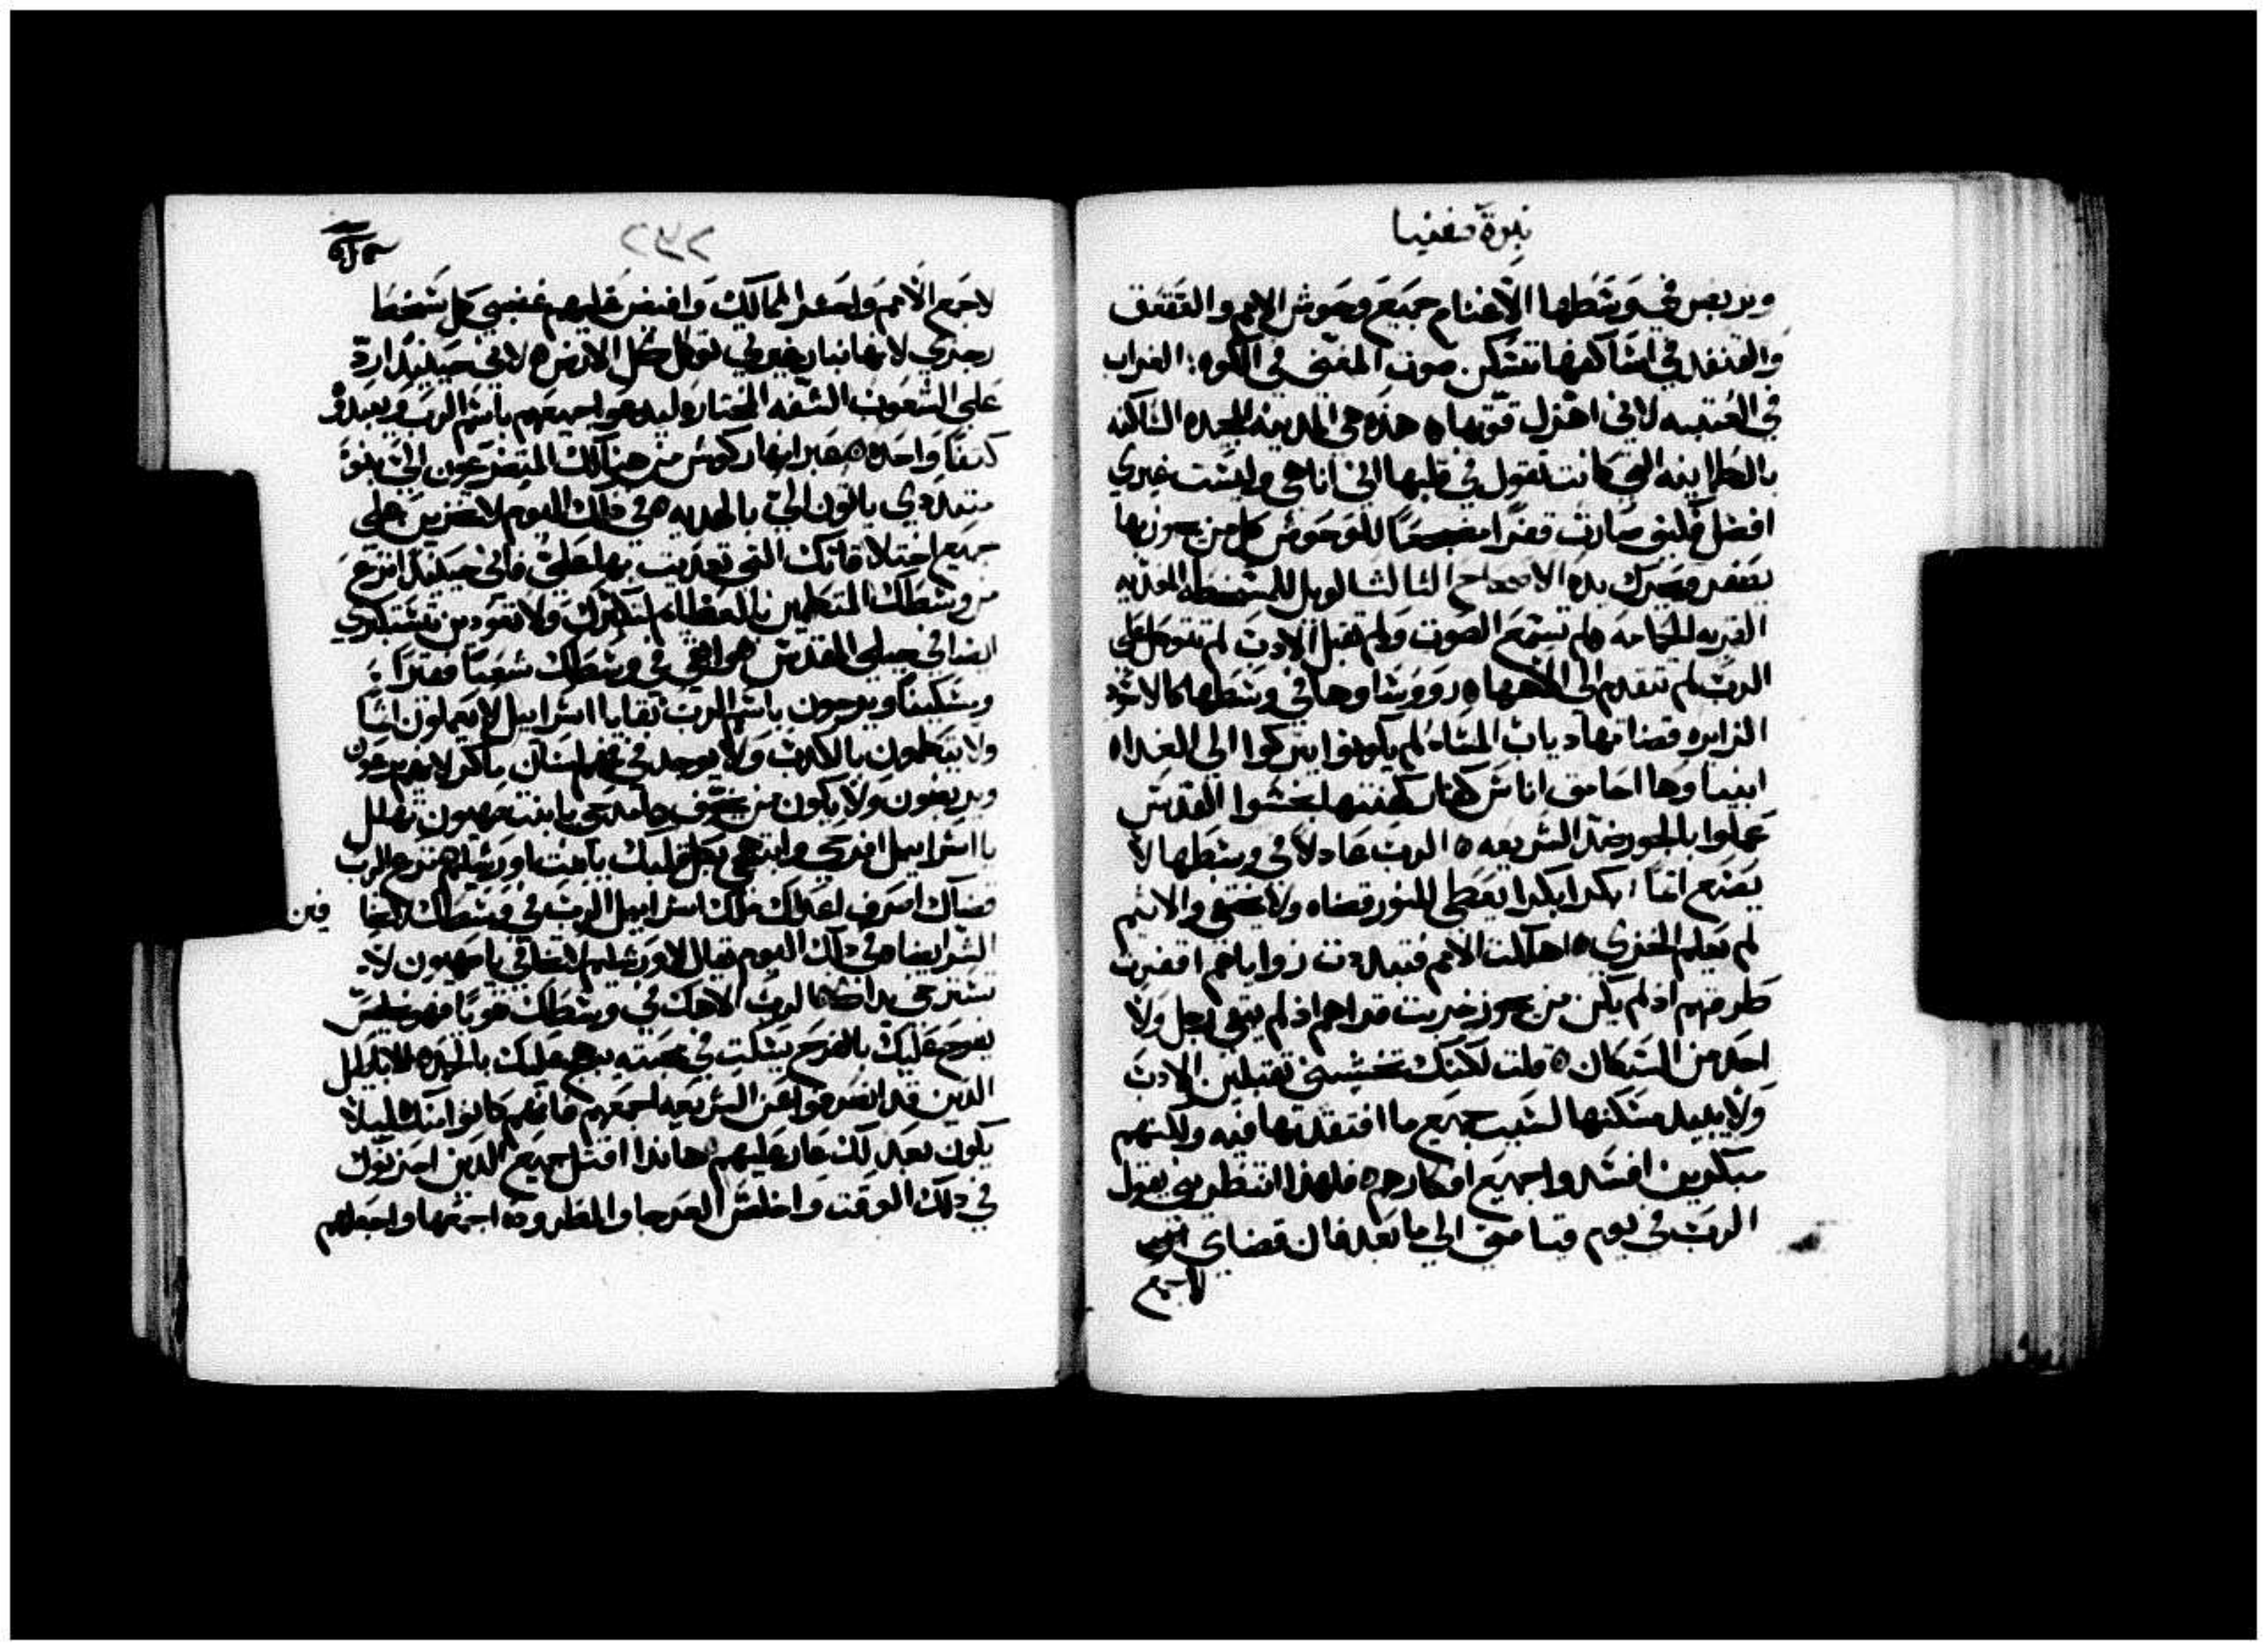 نبوة صفنيا
ويربض في وسطها الاغنام جميع وحوش الامم والققنق
والقنفد في اساكفها تسكن صوت المغني في الكوه: الغراب
في العتبه لاني اهزل قوتها ه هذه هي المدينه المجده الساكنه
بالطمانينه التي كانت تقول في قلبها اني انا هي وليست غيري
افضل كيف صارت قفرا للوحوش كل من يجوز بها
يصفر ويحرك يده الاصحاح الثالث الويل للمسخطه المفديه
القريه الحمامه لم تسمع الصوت ولم تقبل الادب لم تتوكل على
الرب لم تتقدم الى الاهها ه رووساوها في وسطها كالاسد
الزايره قضاتها دياب المساء لم يكونوا يتركوا الى الغداه
انبياوها احامق اناس كهنتها نجسوا القدس
عملوا بالجور ضد الشريعه ه الرب عادلا في وسطها لا
يصنع اثما بكرا بكرا يعطي للنور قضاه ولا يختفي والاثيم
لم يعلم الخزي ه اهلكت الامم فتبددت زواياهم اقفرت
طرقهم اذ لم يكن من يجوز خربت قراهم اذ لم يبقى رجل ولا
احد من السكان ه قلت لكنك تخشيني تقبلين الادب
ولا يبيد مسكنها لسبب جميع ما افتقدتها فيه ولاكنهم
مبكرين افسدوا جميع افكارهم ه فلهذا انتظريني يقول
الرب في يوم قيامتي الى ما بعد فان قضاي
لاجمع
٢٧٢
لاجمع الامم واجمع الممالك وافيض عليهم غضبي كل سخط
رجزي لانها بنار غيرتي توكل كل الارض ه لاني حينيذ ارد
على الشعوب الشفه المختاره ليدعوا جميعهم باسم الرب ويعبدوه
كتفا واحده ه عبر انهار كوش من هنالك المتضرعون الي بنو
متبددي ياتون الي بالهديه ه في ذلك اليوم لا تخزين على
جميع اختلاقاتك التي تعديت بها علي فاني حينيذ انزع
من وسطك المتكلمين بالعظايم لتكبرك ولا تعودين تستكبري
ايضا في جبلي المقدس ه وابقي في وسطك شعبا فقيرا
ومسكينا ويرجون باسم الرب بقايا اسراييل لا يعملون اثما
ولا يتكلمون بالكدب ولا يوجد في فمهم لسان ماكر لانهم يرعون
ويربضون ولا يكون من يخوف ه امدحي يا ابنت صهيون تهلل
يا اسراييل افرحي وابتهجي بكل قلبك يا بنت اورشليم ه نزع الرب
قضاك اصرف اعداك ملك اسراييل الرب في وسطك لا تخافين
الشر ايضا ه في ذلك اليوم يقال لاورشليم لا تخافي يا صهيون لا
تسترخي يداك ه الرب الاهك في وسطك قويا فهو يخلص
يفرح عليك بالفرح يسكت في محبته يبتهج عليك بالحمد ه الاباطيل
الذين قد انصرفوا عن الشريعه اجمعهم فانهم كانوا منك ليلا
يكون بعد لك عار عليهم ه هاندا اقتل جميع الدين احزنوك
في ذلك الوقت واخلص العرجا والمطروده اجمعها واجعلهم